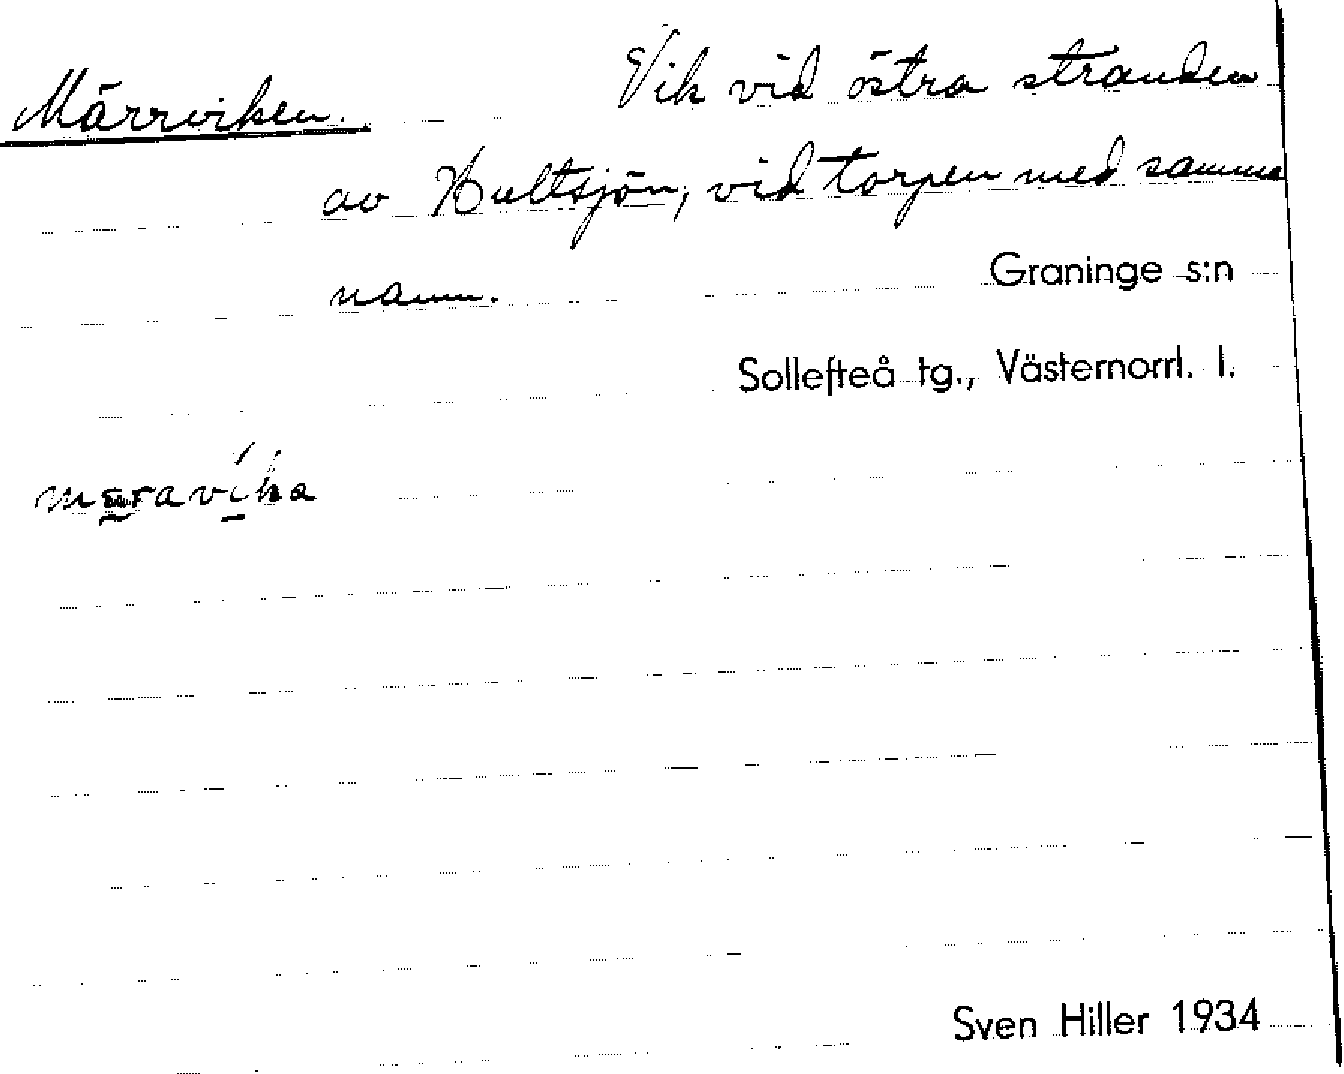 Märrviken. Vik vid östra stranden
av Hultsjön, vid torpen med samma
namn.
Graninge s:n
Sollefteå tg., Västernorrl. l.
Sven Hiller 1934